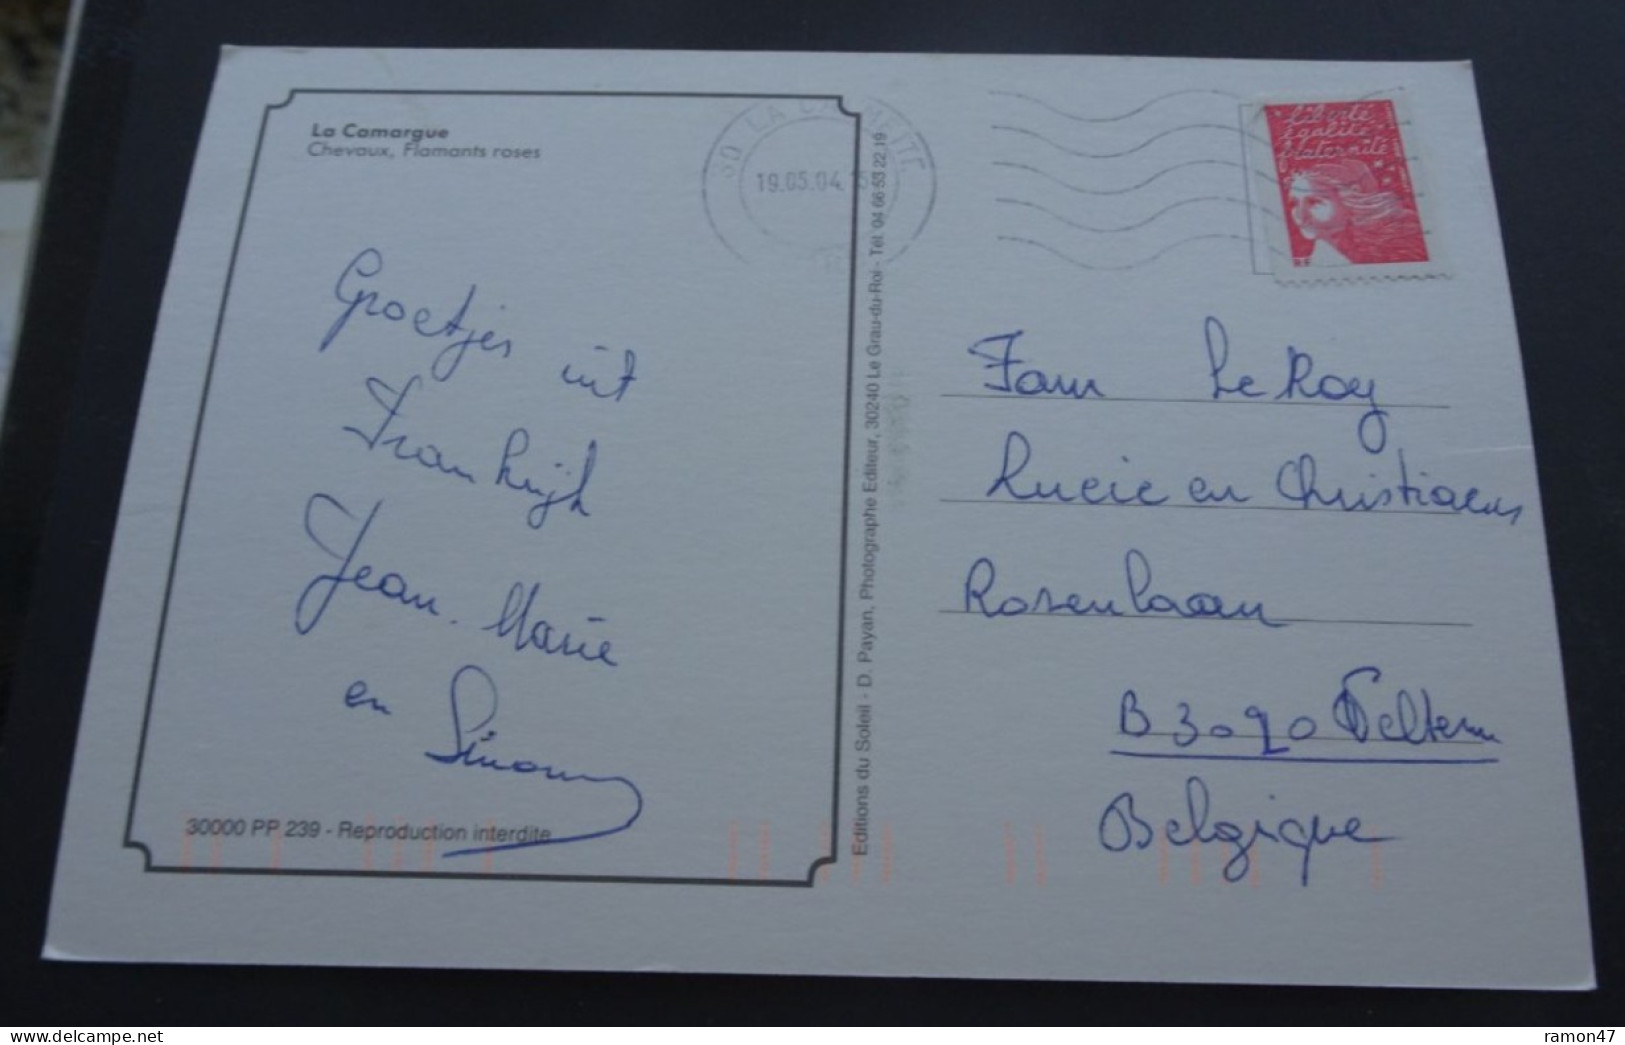 La Camargue
Chevaux, Flamants roses
Groetjes uit
Frankrijk
Jean-Marie
en Simonne
30000 PP 239 - Reproduction interdite
Editions du Soleil - D. Payan, Photographe Editeur, 30240 Le Grau-du-Roi - Tél. 04 66 53 22 19
19.05.04
Liberté
égalité
fraternité
RF
Fam Le Roy
Lucie en Christiaens
Rozenlaan
B 3090
Belgique
ramon47